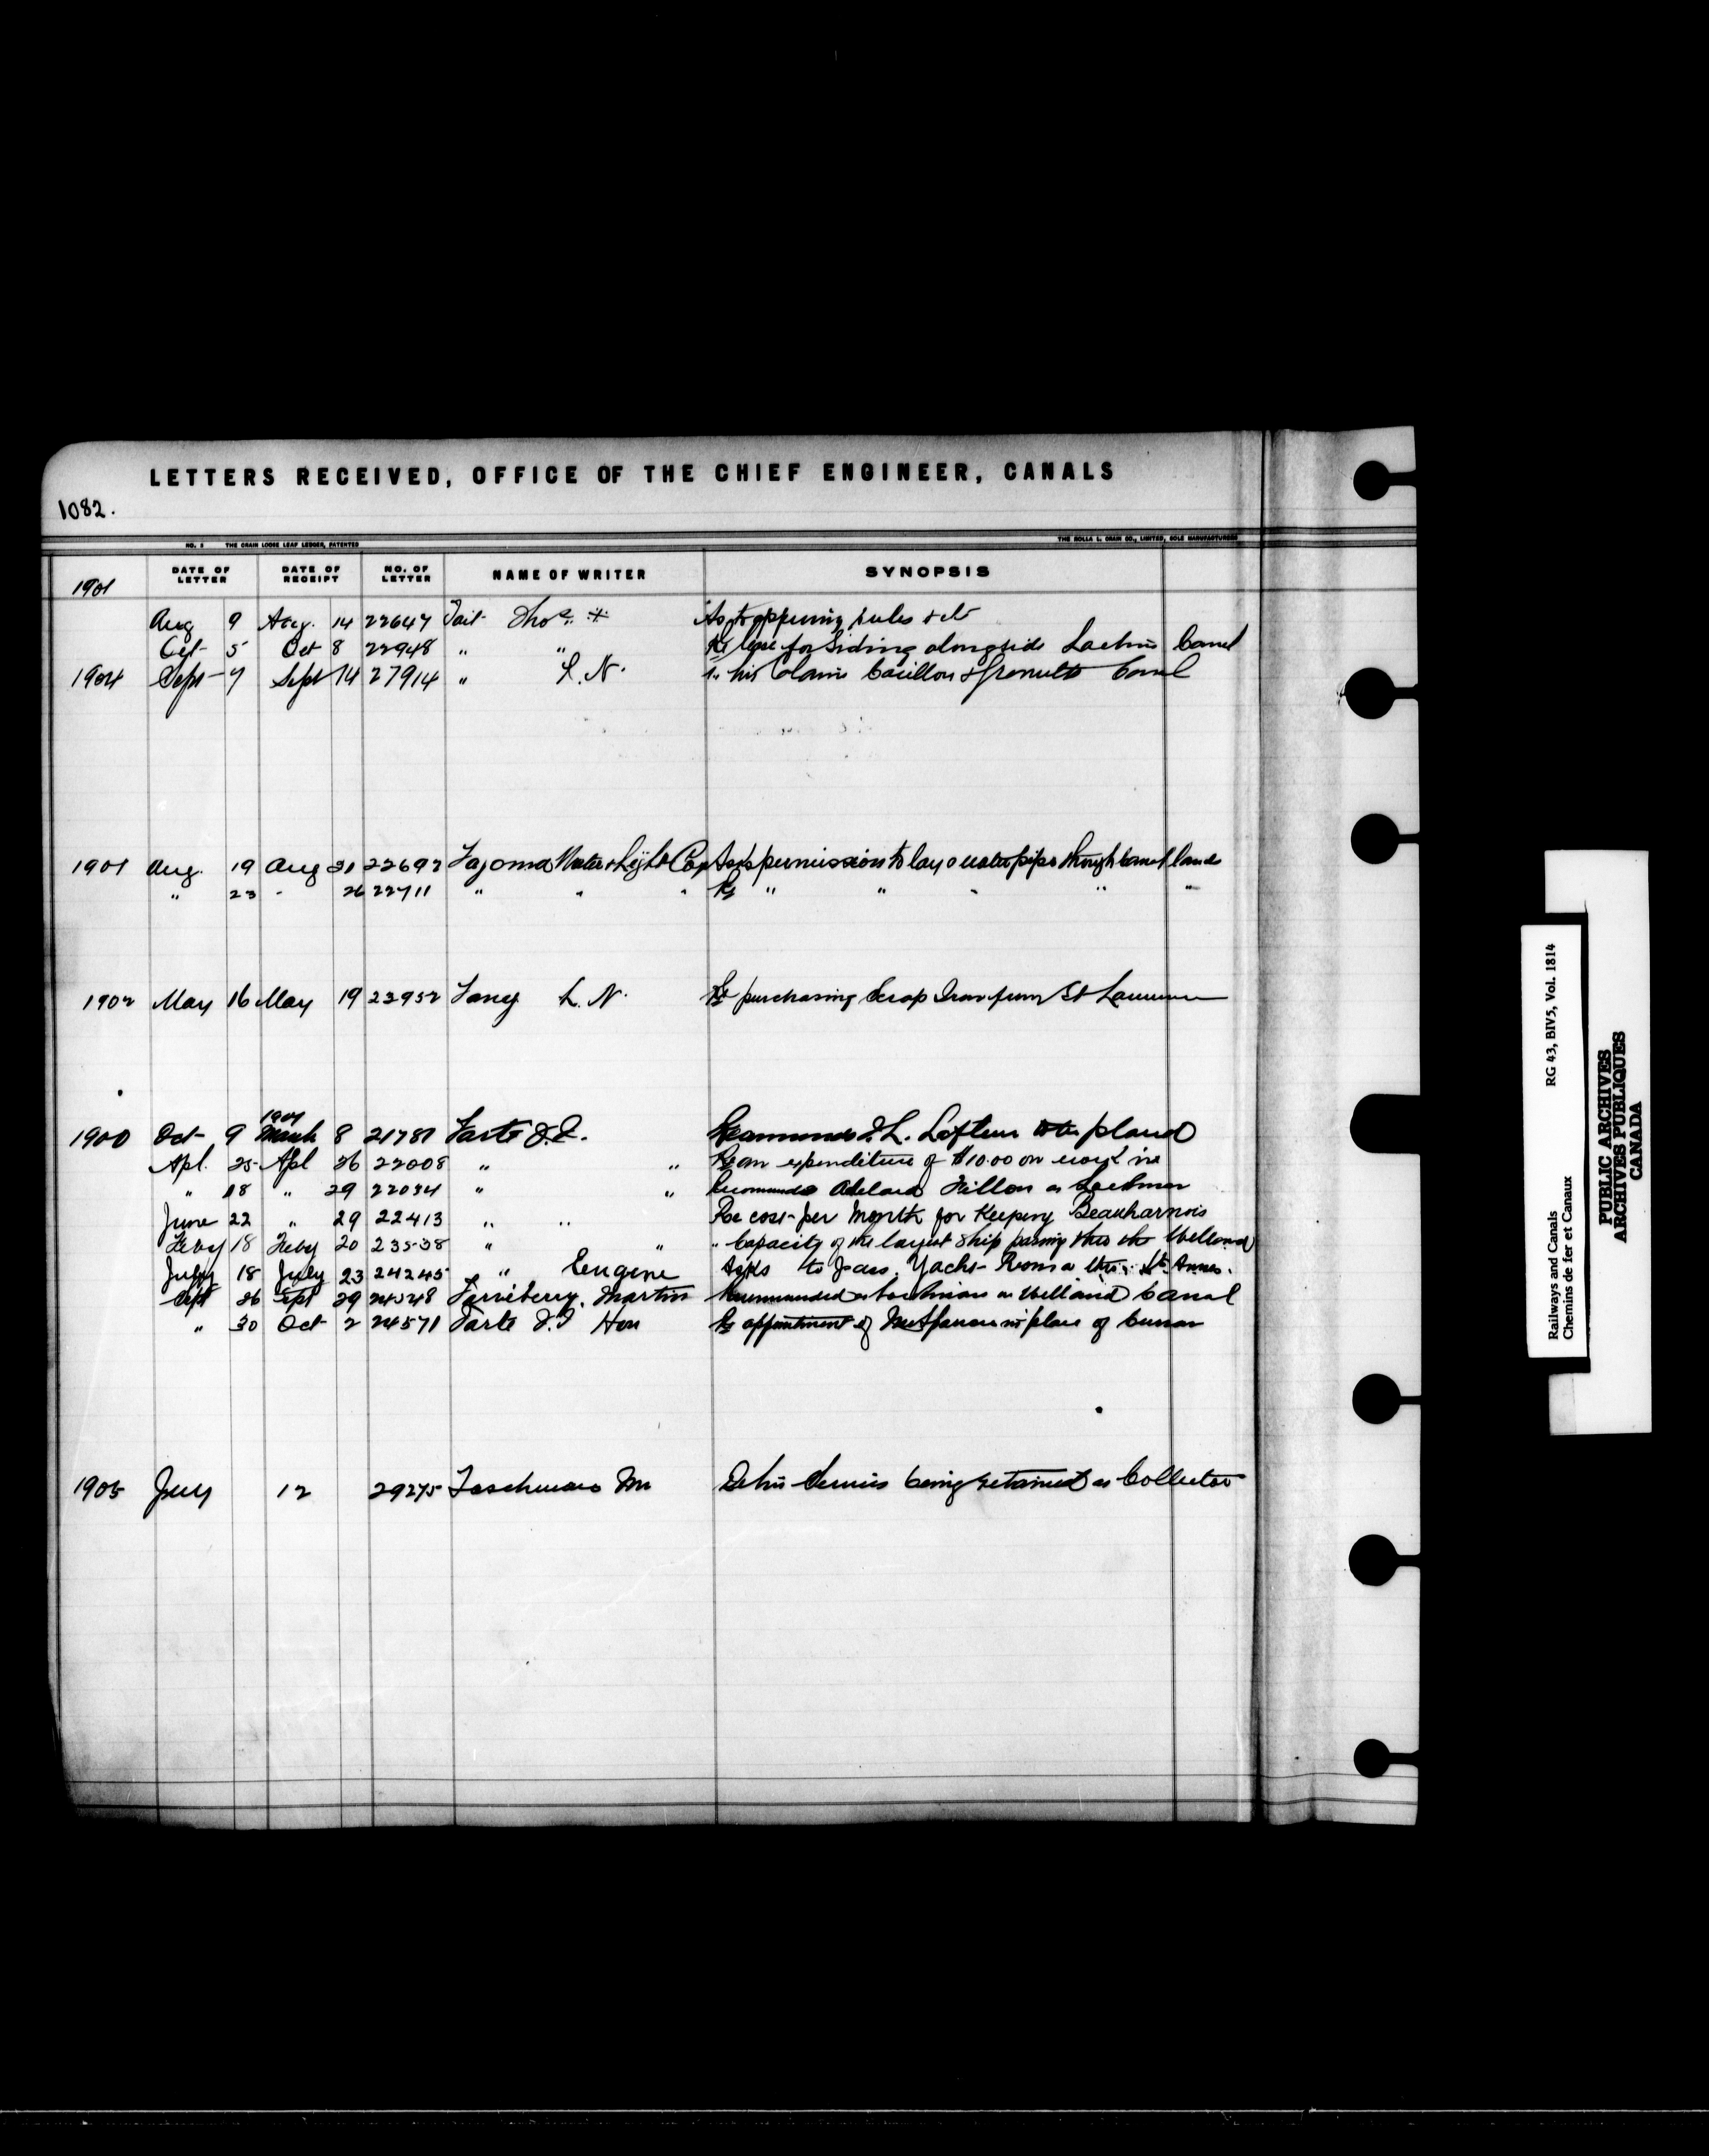 LETTERS RECEIVED, OFFICE OF THE CHIEF ENGINEER, CANALS
1082.
NO. 5 THE CRAIN LOOSE LEAF LEDGER, PATENTED THE ROLLA L. CRAIN CO., LIMITED, SOLE MANUFACTURERS
1901 DATE OF LETTER DATE OF RECEIPT NO. OF LETTER NAME OF WRITER SYNOPSIS
Aug 9 Aug. 14 22647 Tait Thos. As to opening
Oct 5 Oct 8 22948 " " Re lease for Siding alongside Lachine Canal
1904 Sept 7 Sept 14 27914 " L. N. his Claim Carillon & Grenville Canal
1901 Aug. 19 Aug 21 22692 Water & Light Co Asks permission to lay water pipe through canal lands
" 23 - 26 22711 " " " Re " " " " "
1902 May 16 May 19 23952 L. N. Re purchasing Scrap Iron from St Lawrence
1901
1900 Oct 9 March 8 21781 Tarte J. I.
Apl. 25 Apl 26 22008 " " Re an expenditure of $10.00 on
" 18 " 29 22034 " " Recommends Adelard Fillon as Lockman
June 22 " 29 22413 " " Re cost per Month for Keeping Beauharnois
Feby 18 Feby 20 23538 " " " Capacity of the largest Ship passing thro the Welland
July 18 July 23 24245 " Eugene Asks to pass Yacht St. Annes.
Sept 26 Sept 29 24548 Martin Recommended as on Welland Canal
" 30 Oct 2 24571 Tarte J. I Hon Re appointment of in place of Curran
1905 July 12 29275 Wm being retained as Collector
Railways and Canals RG 43, BIV5, Vol. 1814
Chemins de fer et Canaux
PUBLIC ARCHIVES
ARCHIVES PUBLIQUES
CANADA